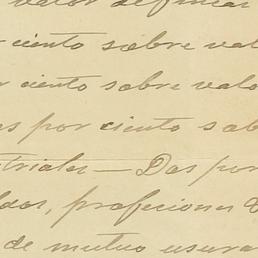 valor de fincas
por ciento sobre val
r ciento sobre valo
as por ciento sob
triales — Dos por
ldos, profesiones &
de mutuo usura